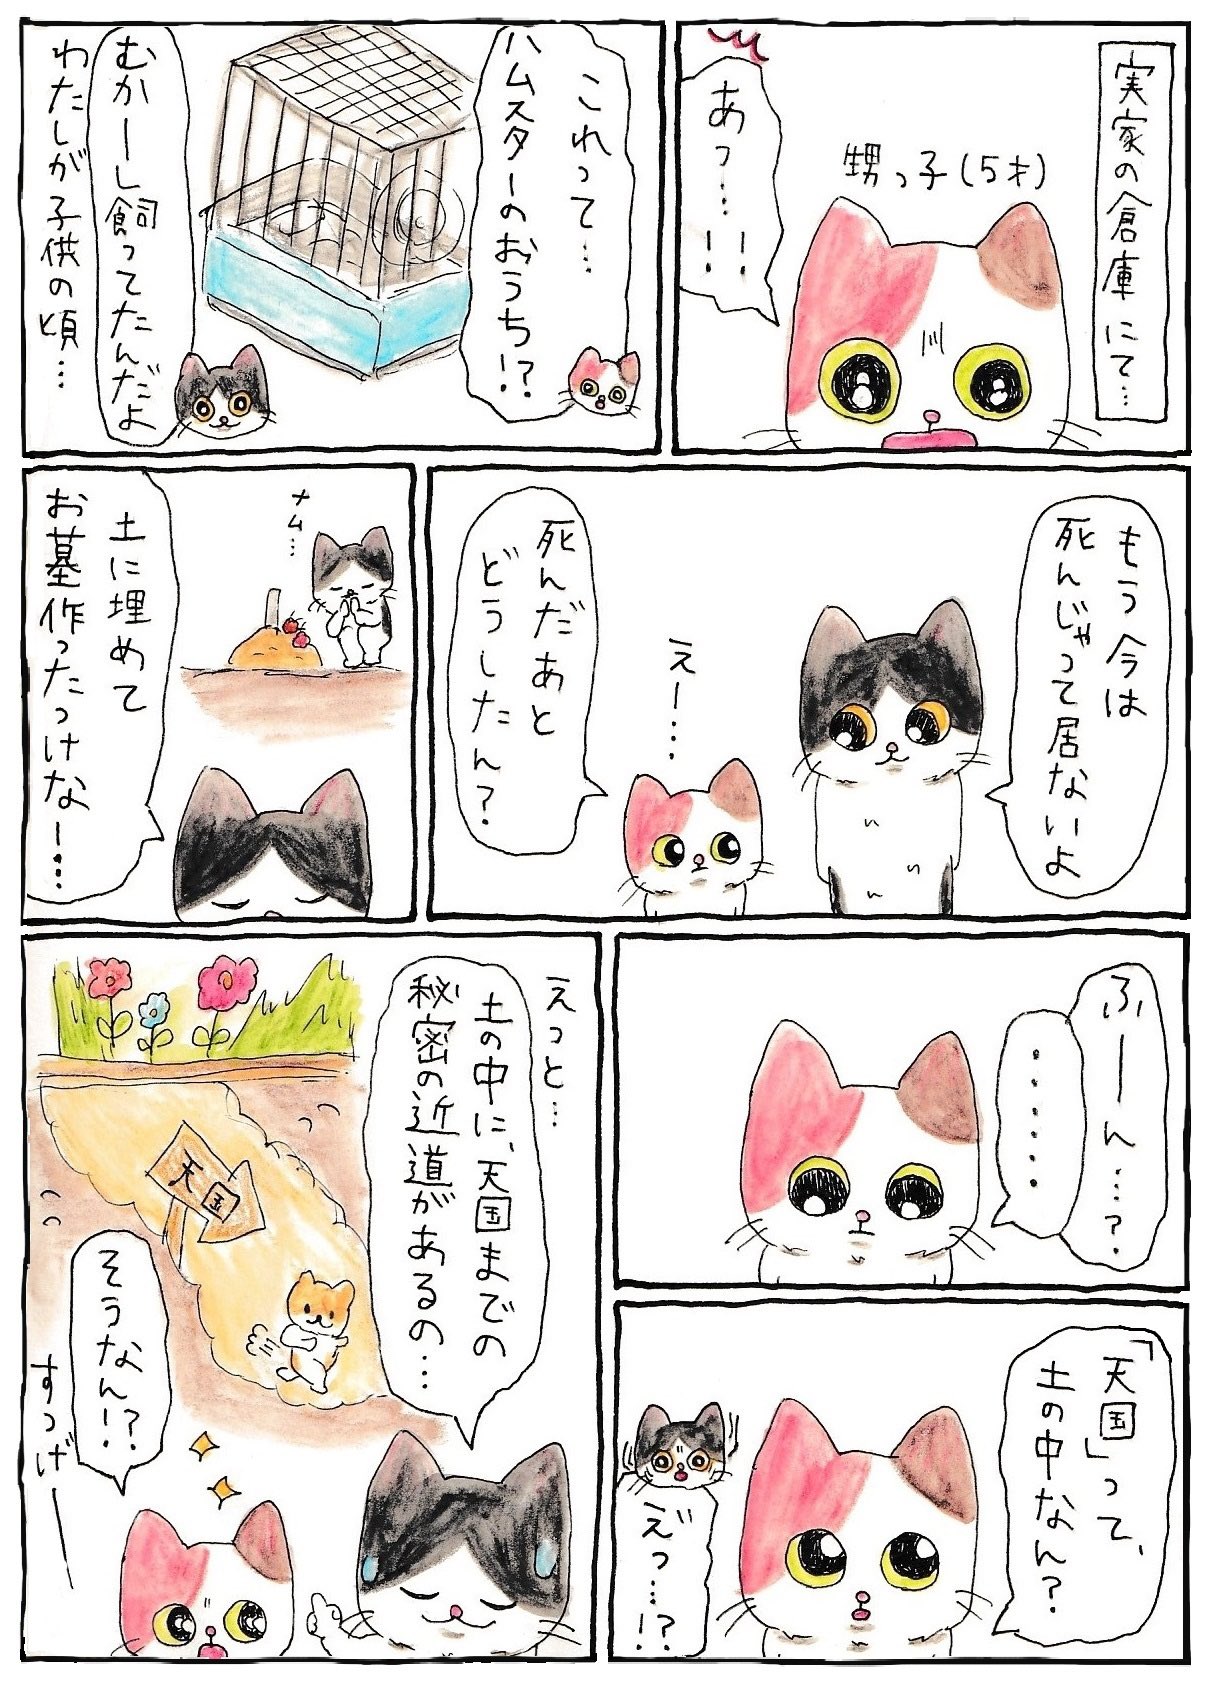 実家の倉庫にて…
甥っ子(5才)
あっ…!!
これって…
ハムスターのおうち!?
むかーし飼ってたんだよ
わたしが子供の頃…
もう今は
死んじゃって居ないよ
えー…
死んだあと
どうしたん?
ナム…
土に埋めて
お墓作ったっけなー…
ふーん…?
……
「天国」って、
土の中なん?
えっ…!?
えっと…
土の中に、天国までの
秘密の近道があるの…
天国
そうなん!?
すっげー